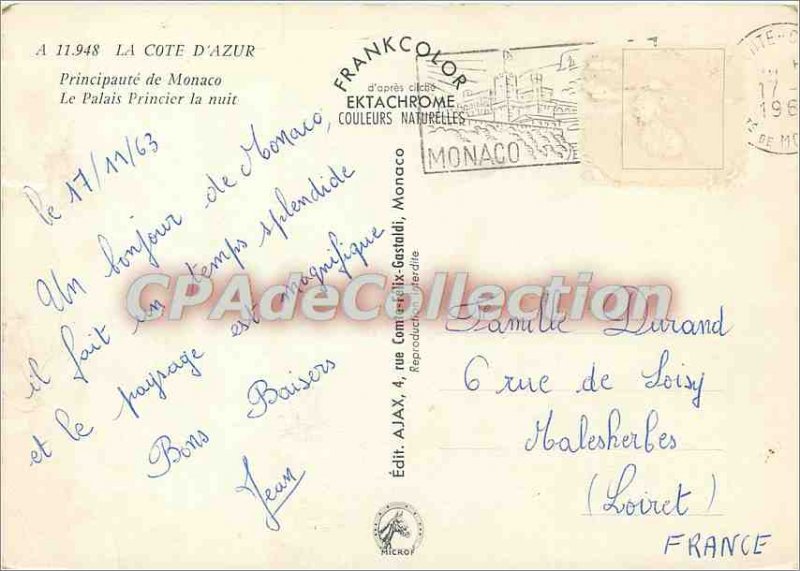 A 11.948 LA COTE D'AZUR
Principauté de Monaco
Le Palais Princier la nuit
FRANKCOLOR
d'après cliché
EKTACHROME
COULEURS NATURELLES
MONACO
17
196
DE MO
le 17/11/63
Un bonjour de Monaco,
il fait un temps splendide
et le paysage est magnifique
Bons Baisers
Jean
Édit. AJAX, 4, rue Comte-Félix-Gastaldi, Monaco
Reproduction interdite
CPAdeCollection
Famille Durand
6 rue de Loisy
Malesherbes
(Loiret)
FRANCE